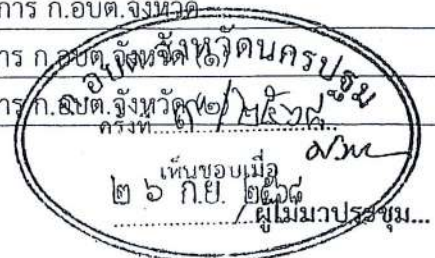 การ ก.อบต.จังหวัด
การ ก.อบต.จังหวัด (๑)
การ ก.อบต.จังหวัด (๒)
ก.อบต.จังหวัดนครปฐม
ครั้งที่ ๙/๒๕๖๘
เห็นชอบเมื่อ
๒๖ ก.ย. ๒๕๖๘
/ ผู้ไม่มาประชุม...